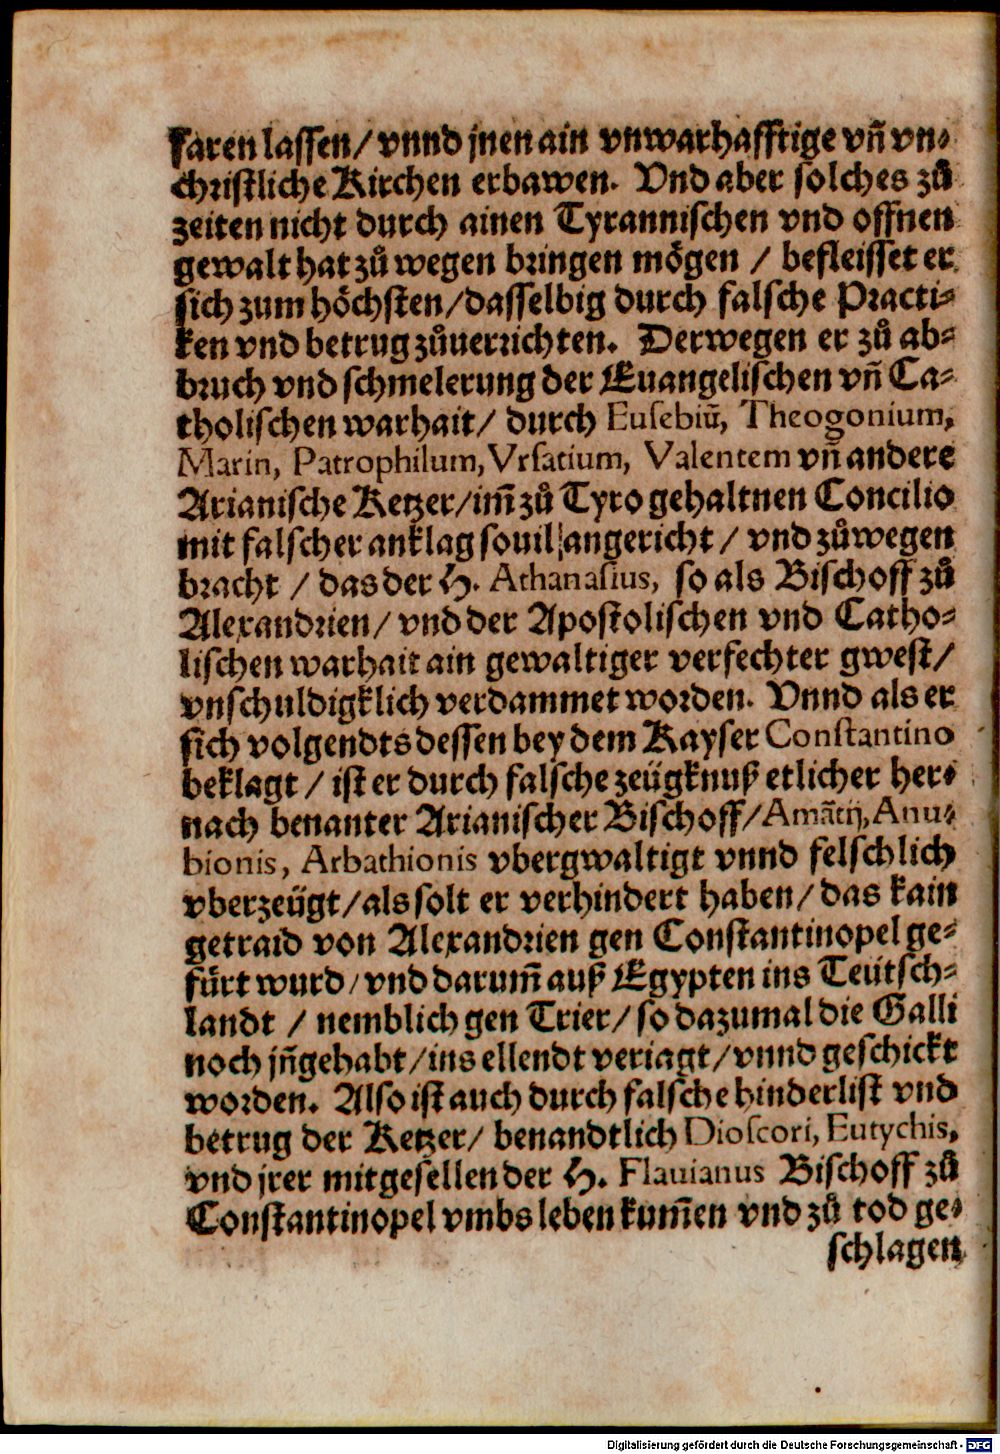 faren lassen/ vnnd jnen ain vnwarhafftige vn̄ vn⸗
christliche Kirchen erbawen. Vnd aber solches zů
zeiten nicht durch ainen Tyrannischen vnd offnen
gewalt hat zů wegen bringen mögen / befleisset er
sich zum höchsten/dasselbig durch falsche Practi⸗
ken vnd betrug zůuerrichten. Derwegen er zů ab⸗
bruch vnd schmelerung der Euangelischen vn̄ Ca⸗
tholischen warhait/ durch Eusebiū, Theogonium,
Marin, Patrophilum, Vrsatium, Valentem vn̄ andere
Arianische Ketzer/im̄ zů Tyro gehaltnen Concilio
mit falscher anklag souil angericht / vnd zůwegen
bracht / das der H. Athanasius, so als Bischoff zů
Alexandrien/ vnd der Apostolischen vnd Catho⸗
lischen warhait ain gewaltiger verfechter gwest/
vnschuldigklich verdammet worden. Vnnd als er
sich volgendts dessen bey dem Kayser Constantino
beklagt / ist er durch falsche zeügknuß etlicher her⸗
nach benanter Arianischer Bischoff/Amātij, Anu⸗
bionis, Arbathionis vbergwaltigt vnnd felschlich
vberzeügt/als solt er verhindert haben/ das kain
getraid von Alexandrien gen Constantinopel ge⸗
fürt wurd/ vnd darum̄ auß Egypten ins Teütsch⸗
landt / nemblich gen Trier/ so dazumal die Galli
noch jn̄gehabt/ins ellendt veriagt/vnnd geschickt
worden. Also ist auch durch falsche hinderlist vnd
betrug der Ketzer/ benandtlich Dioscori, Eutychis,
vnd jrer mitgesellen der H. Flauianus Bischoff zů
Constantinopel vmbs leben kum̄en vnd zů tod ge⸗
schlagen
Digitalisierung gefördert durch die Deutsche Forschungsgemeinschaft - DFG